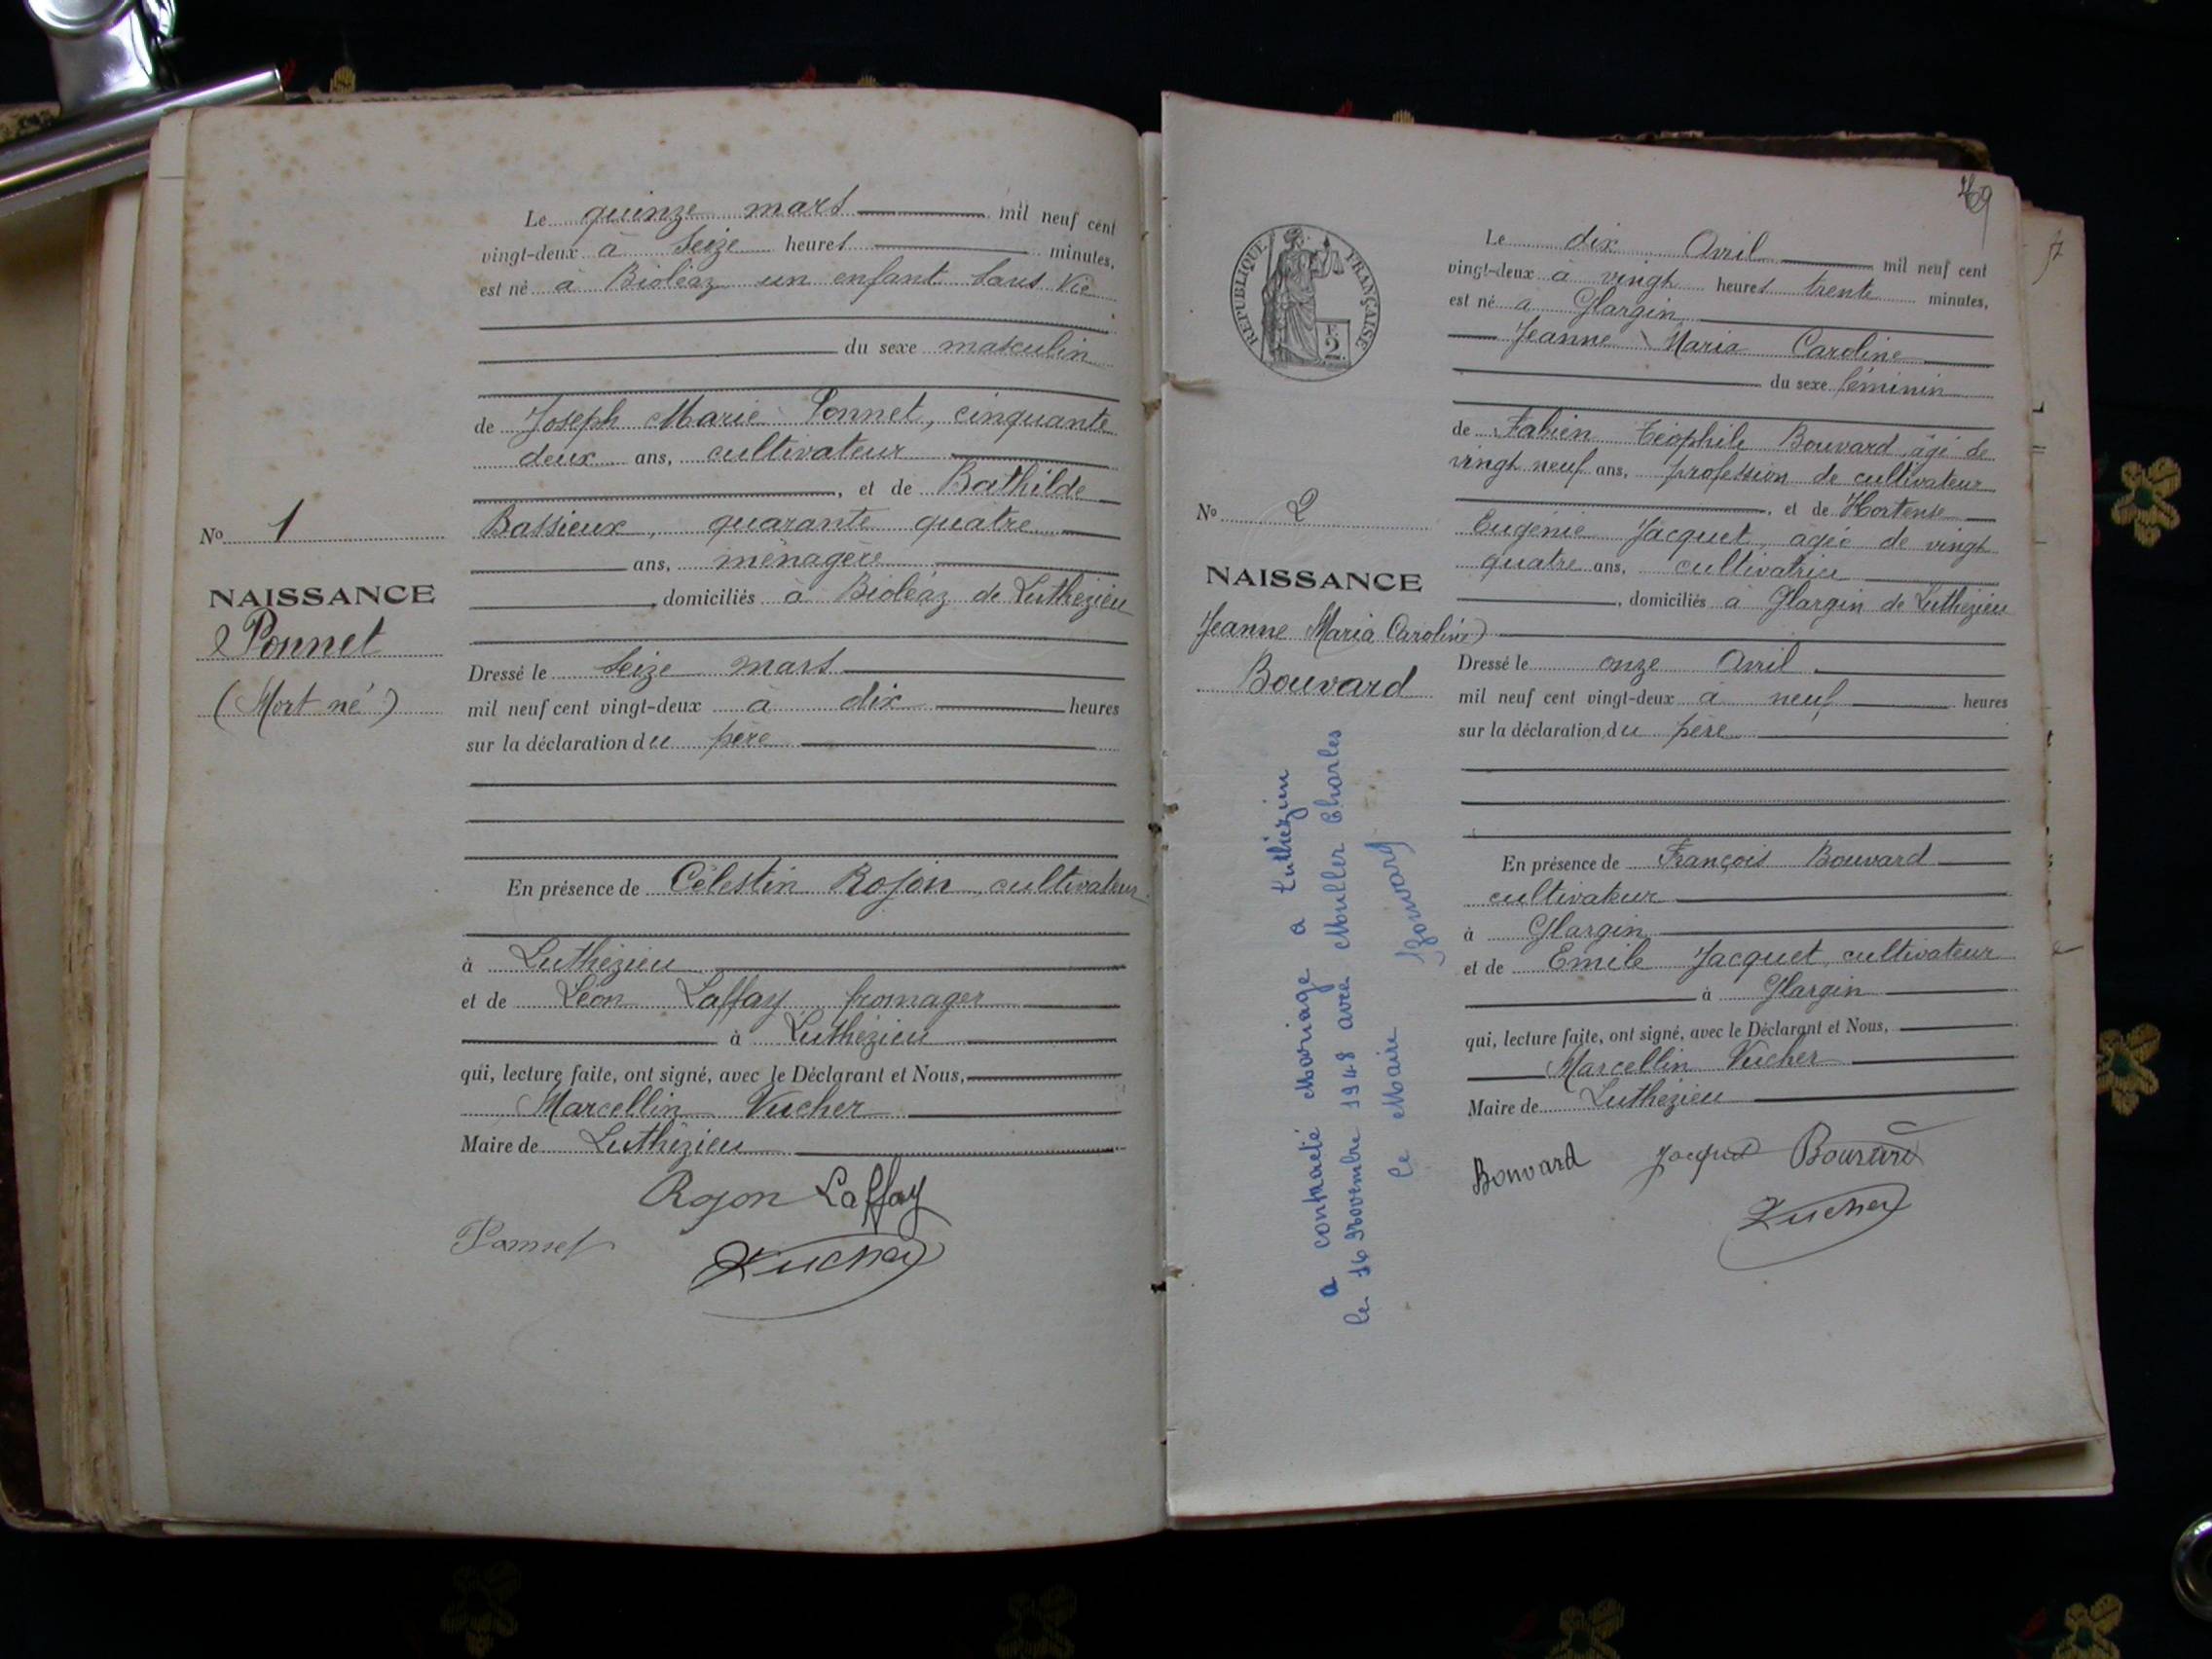 Le quinze mars mil neuf cent
vingt-deux à Seize heures minutes,
est né à Bioléaz un enfant sans Vie
du sexe masculin
de Joseph Marie Ponnet, cinquante
deux ans, cultivateur
, et de Bathilde
Bassieux, quarante quatre
ans, ménagère
, domiciliés à Bioléaz de Luthézieu
No 1
NAISSANCE
Ponnet
(Mort né)
Dressé le Seize mars
mil neuf cent vingt-deux à dix heures
sur la déclaration du père
En présence de Célestin Rojon, cultivateur
à Luthézieu
et de Léon Laffay fromager
à Luthézieu
qui, lecture faite, ont signé, avec le Déclarant et Nous,
Marcellin Vucher
Maire de Luthézieu
Rojon Laffay
Ponnet Vucher
69
RÉPUBLIQUE FRANÇAISE
F.
2
Le dix Avril mil neuf cent
vingt-deux à vingt heures trente minutes,
est né a Glargin
Jeanne Maria Caroline
du sexe féminin
de Fabien Téophile Bouvard, âgé de
vingt neuf ans, profession de cultivateur
, et de Hortense
Eugénie Jacquet, âgée de vingt
quatre ans, cultivatrice
, domiciliés a Glargin de Luthézieu
No 2
NAISSANCE
Jeanne Maria Caroline)
Bouvard
Dressé le onze Avril
mil neuf cent vingt-deux à neuf heures
sur la déclaration du père
En présence de François Bouvard
cultivateur
à Glargin
et de Emile Jacquet, cultivateur
à Glargin
qui, lecture faite, ont signé, avec le Déclarant et Nous,
Marcellin Vucher
Maire de Luthézieu
Bouvard Jacquet Bouvard
Vucher
a contracté Mariage a Luthézieu
le 16 Novembre 1948 avec Muller Charles
le Maire
Bouvard